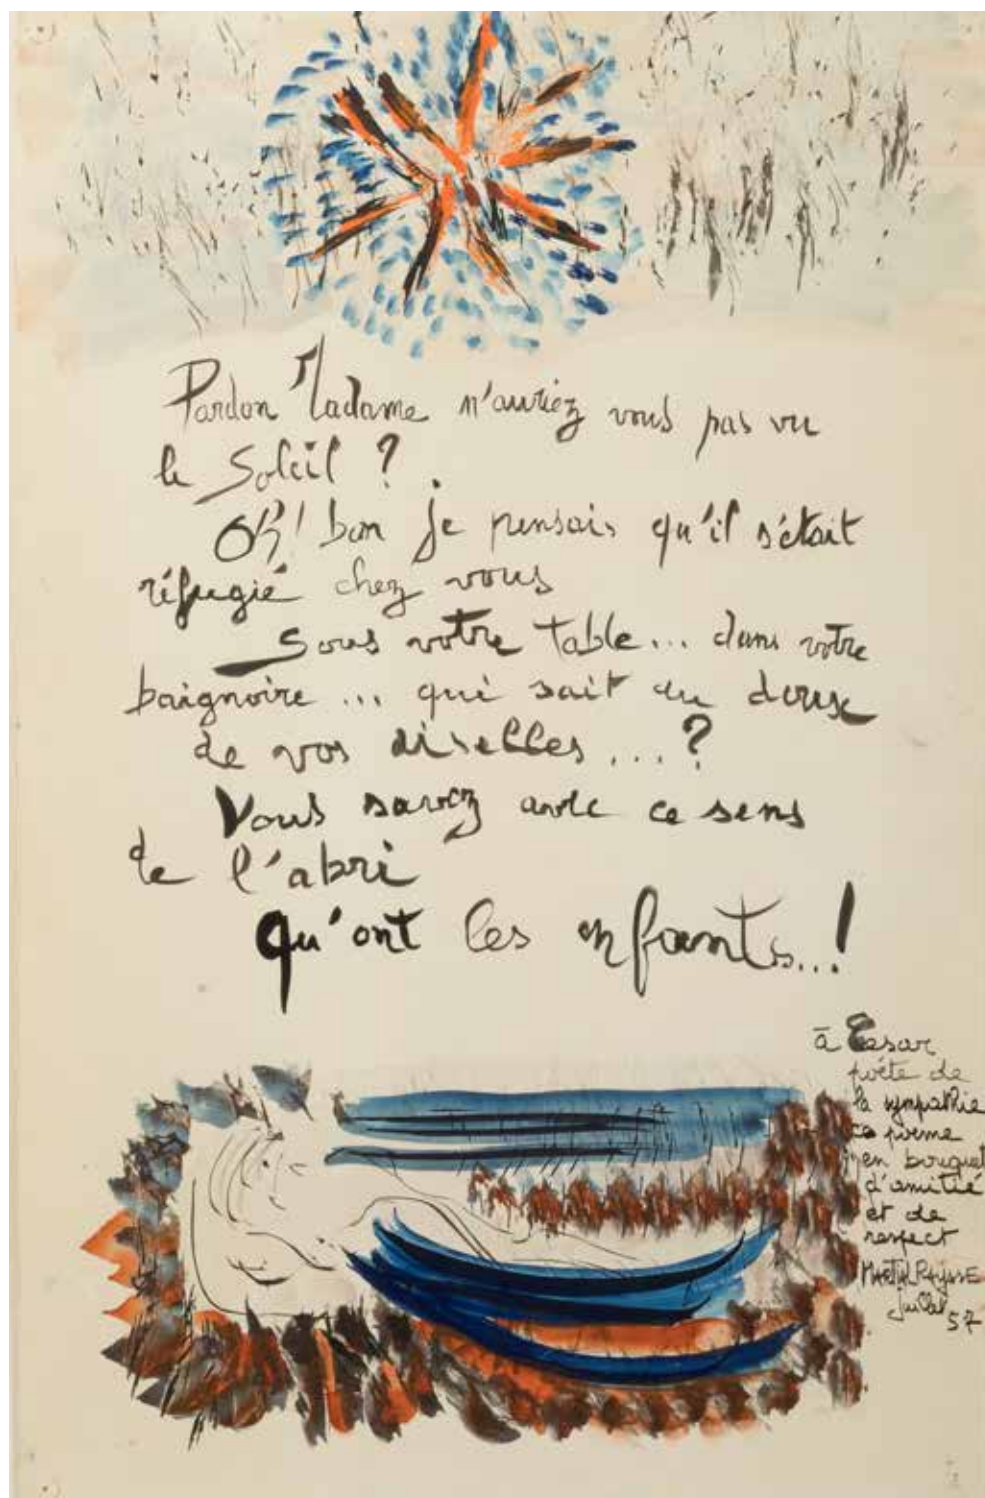 Pardon Madame n'auriez vous pas vu
le Soleil ?
Oh! bon je pensais qu'il s'était
réfugié chez vous
Sous votre table... dans votre
baignoire ... qui sait au doux
de vos aisselles ...?
Vous savez avec ce sens
de l'abri
qu'ont les enfants...!
à César
poète de
la sympathie
ce poème
en bouquet
d'amitié
et de
respect
Martial RAYSSE
juillet
57